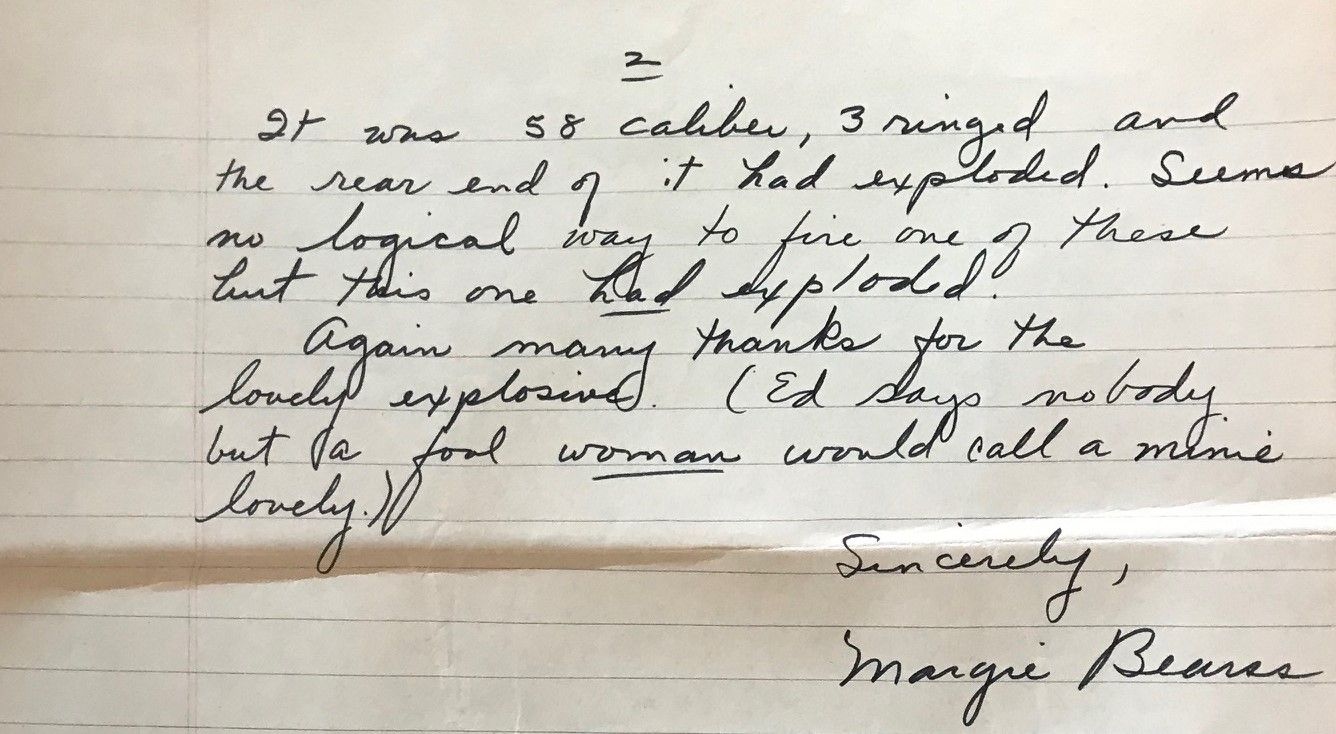 2
It was 58 caliber, 3 ringed and
the rear end of it had exploded. Seems
no logical way to fire one of these
but this one had exploded.
Again many thanks for the
lovely explosive. (Ed says nobody
but a fool woman would call a minie
lovely.)
Sincerely,
Margie Bearss